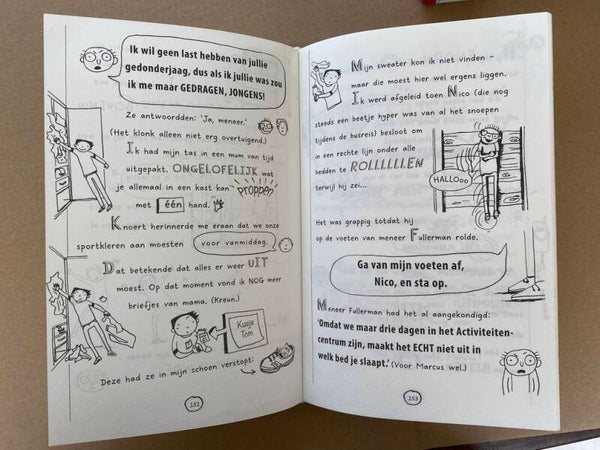 Ik wil geen last hebben van jullie
gedonderjaag, dus als ik jullie was zou
ik me maar GEDRAGEN, JONGENS!
Ze antwoordden: ‘Ja, meneer.’
(Het klonk alleen niet erg overtuigend.)
Ik had mijn tas in een mum van tijd
uitgepakt. ONGELOFELIJK wat
je allemaal in een kast kan proppen
met één hand.
Knoert herinnerde me eraan dat we onze
sportkleren aan moesten voor vanmiddag.
Dat betekende dat alles er weer UIT
moest. Op dat moment vond ik NOG meer
briefjes van mama. (Kreun.)
Kusje
Tom
Deze had ze in mijn schoen verstopt:
152
Mijn sweater kon ik niet vinden –
maar die moest hier wel ergens liggen.
Ik werd afgeleid toen Nico (die nog
steeds een beetje hyper was van al het snoepen
tijdens de busreis) besloot om
in een rechte lijn onder alle
bedden te ROLLLLLLEN
terwijl hij zei...
HALLOoo
Het was grappig totdat hij
op de voeten van meneer Fullerman rolde.
Ga van mijn voeten af,
Nico, en sta op.
Meneer Fullerman had het al aangekondigd:
‘Omdat we maar drie dagen in het Activiteiten-
centrum zijn, maakt het ECHT niet uit in
welk bed je slaapt.’ (Voor Marcus wel.)
153